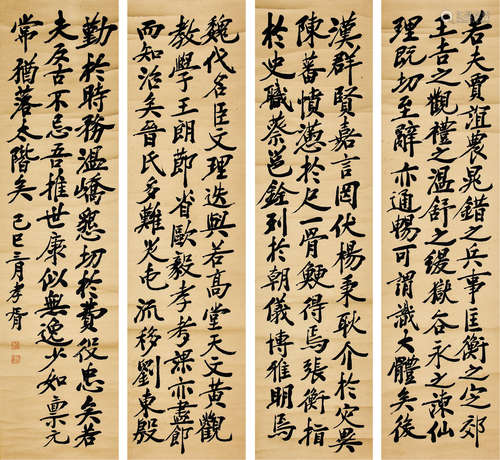 若夫賈誼農晁錯之兵事匡衡之定郊
王吉之觀禮之溫舒之緩獄谷永之諫仙
理既切至辭亦通暢可謂識大體矣後
漢群賢嘉言罔伏楊秉耿介於灾異
陳蕃憤懣於尺一骨鯁得焉張衡指
於史職蔡邕銓列於朝儀博雅明焉
魏代名臣文理迭興若高堂天文黃觀
教學王朗節省毅孝考課亦盡節
而知治矣晉氏多難災屯流移劉東殷
勤於時務溫嶠懇切於費役忠矣若
夫吾不忌吾推世康似無逸少如稟元
常猶太階矣 己巳三月孝胥